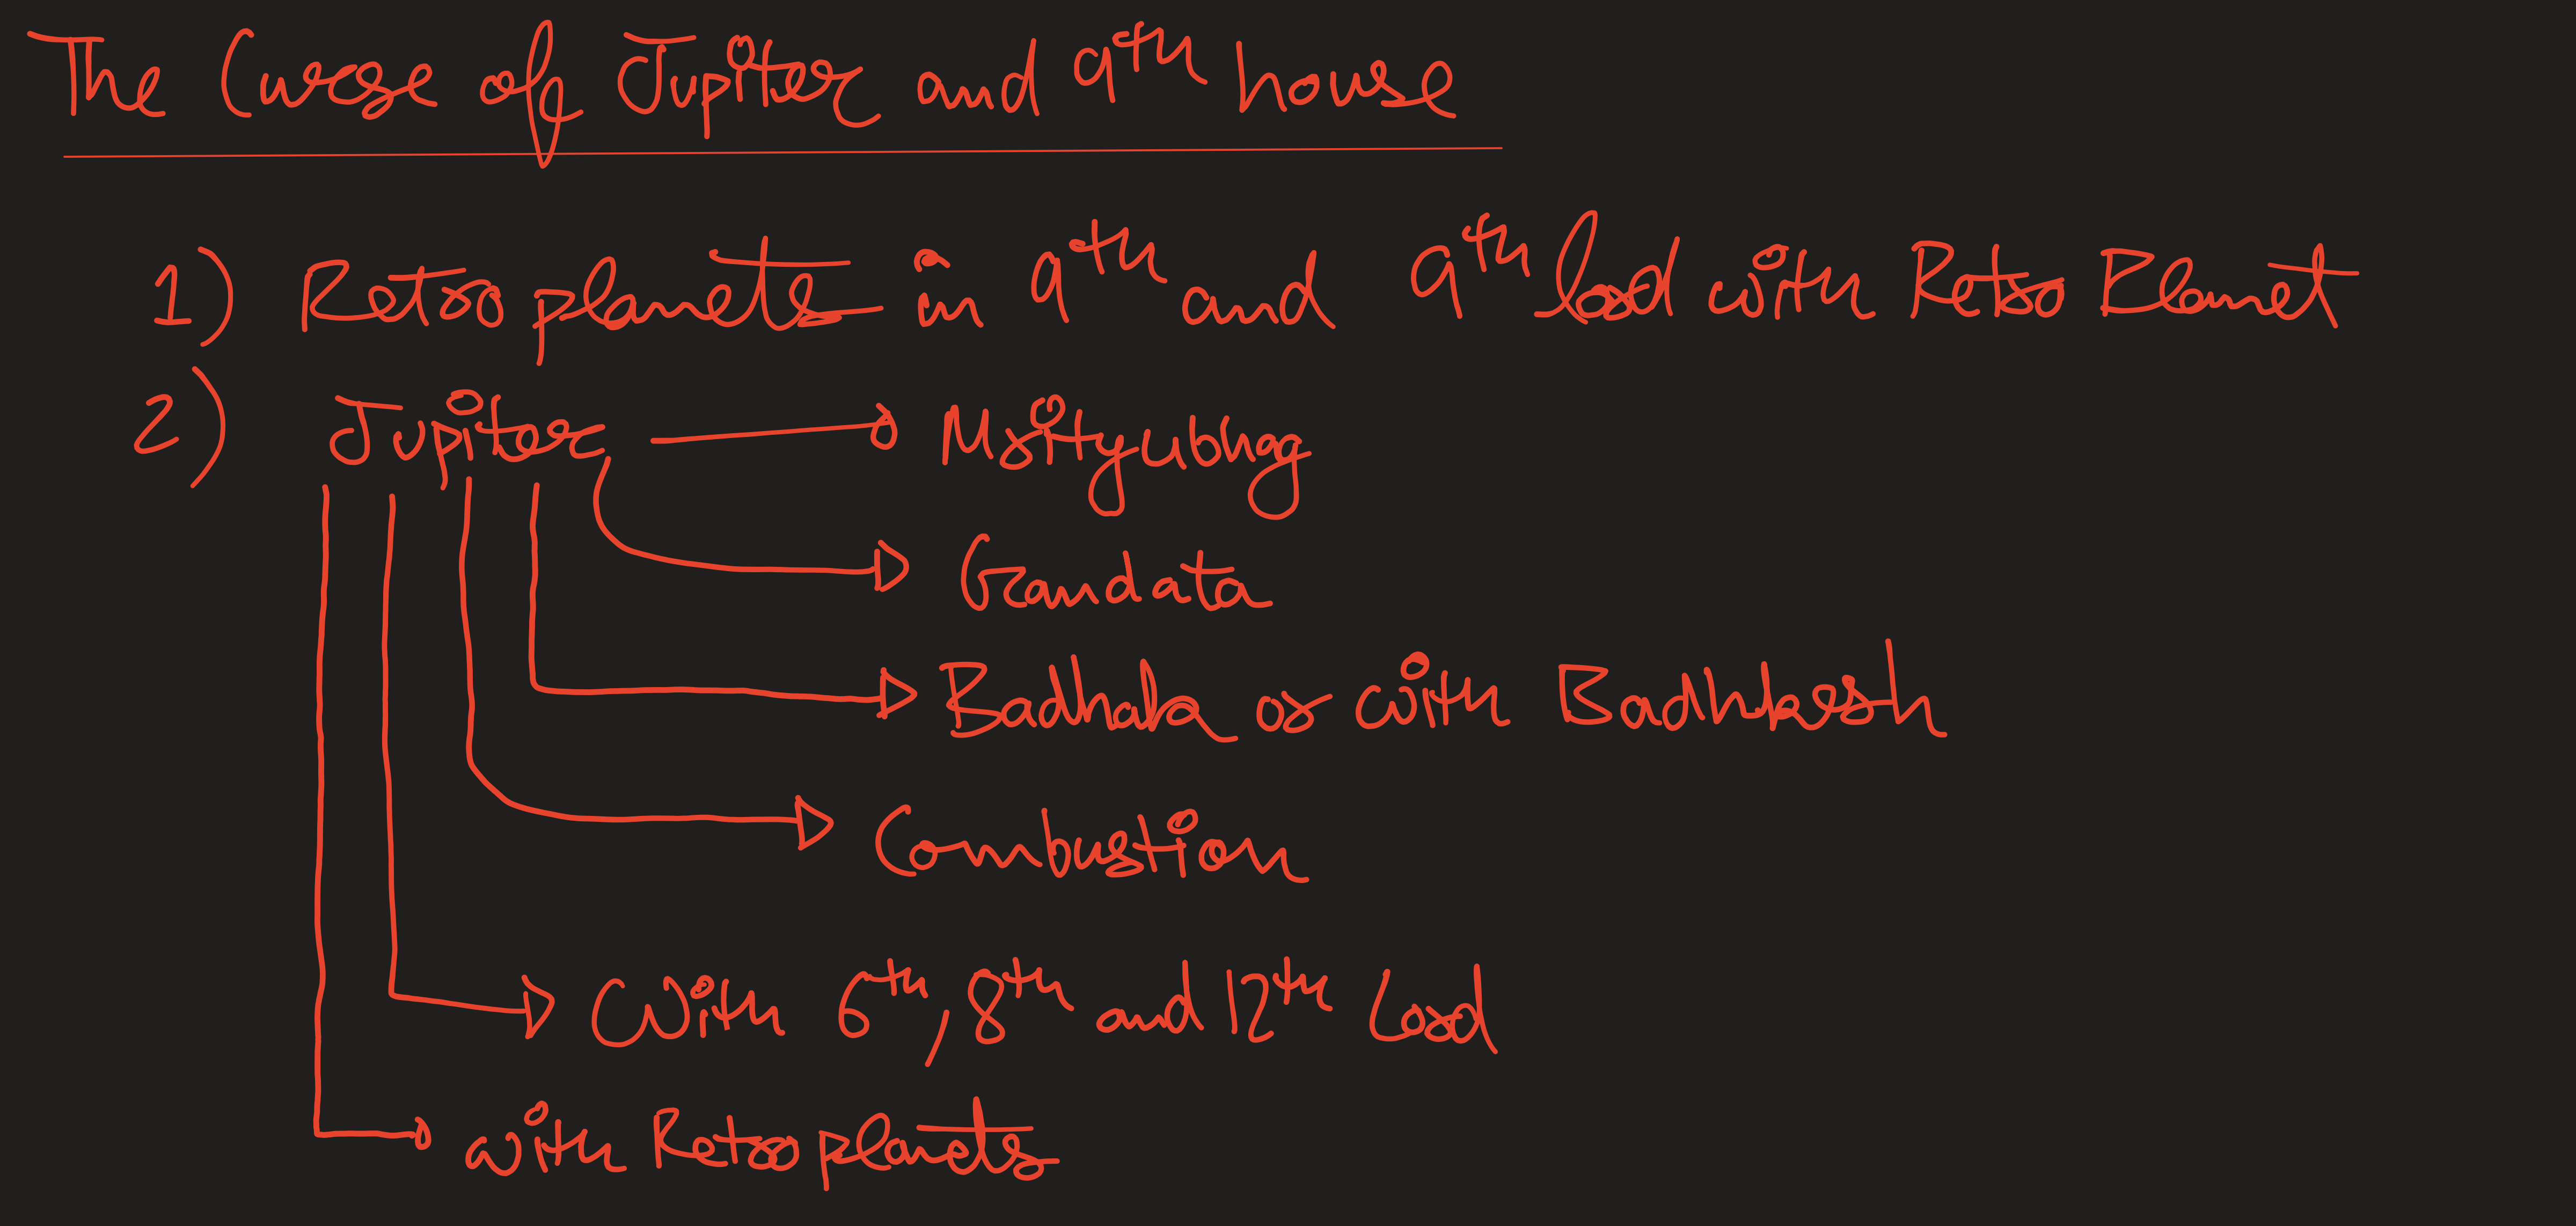 The Curse of Jupiter and 9th house
1) Retro planets in 9th and 9th lord with Retro Planet
2) Jupiter
Mrityubhag
Gandata
Badhaka or with Badhkesh
Combustion
With 6th, 8th and 12th Lord
with Retro planets